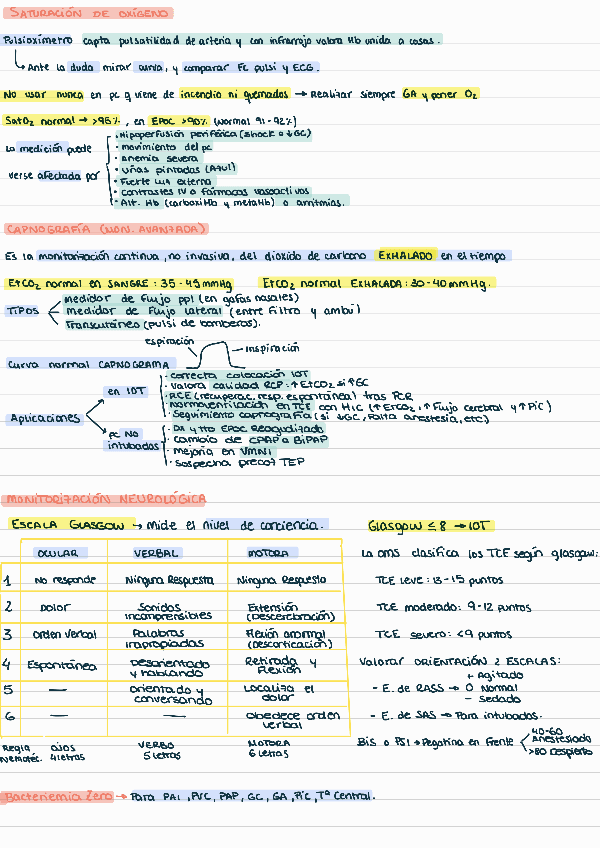 SATURACIÓN DE OXÍGENO
Pulsioxímetro capta pulsatilidad de arteria y con infrarrojo valora Hb unida a cosas.
Ante la duda mirar curva, y comparar Fc pulsi y ECG.
No usar nunca en pc q viene de incendio ni quemados → Realizar siempre GA y poner O2
SatO2 normal → >95%, en EPOC >90% (normal 91-92%)
La medición puede verse afectada por
· Hipoperfusión periférica (shock o ↓GC)
· movimiento del pc
· anemia severa
· uñas pintadas (Azul)
· Fuerte luz externa
· contrastes IV o fármacos vasoactivos
· Alt. Hb (carboxiHb y metaHb) o arritmias.
CAPNOGRAFÍA (MON. AVANZADA)
Es la monitorización continua, no invasiva, del dióxido de carbono EXHALADO en el tiempo
EtCO2 normal en SANGRE: 35-45 mmHg EtCO2 normal EXHALADA: 30-40 mmHg.
TIPOS
medidor de flujo ppl (en gafas nasales)
medidor de flujo lateral (entre filtro y ambú)
Transcutáneo (pulsi de bomberos).
espiración
inspiración
Curva normal CAPNOGRAMA
Aplicaciones
en IOT
· correcta colocación IOT
· Valora calidad RCP: ↑EtCO2 si ↑GC
· RCE (recuperac. resp. espontánea) tras PCR
· Normoventilación en TCE con HIC (↑EtCO2, ↑Flujo cerebral y ↑PIC)
· Seguimiento capnografía (si ↓GC, falta anestesia, etc)
pc NO intubados
· Dx y tto EPOC reagudizado
· cambio de CPAP a BiPAP
· mejoría en VMNI
· sospecha precoz TEP
MONITORIZACIÓN NEUROLÓGICA
ESCALA GLASGOW → mide el nivel de conciencia.
OCULAR VERBAL MOTORA
1 No responde Ninguna Respuesta Ninguna Respuesta
2 Dolor Sonidos incomprensibles Extensión (Descerebración)
3 Orden verbal Palabras inapropiadas Flexión anormal (descorticación)
4 Espontánea Desorientado y hablando Retirada y flexión
5 — orientado y conversando Localiza el dolor
6 — — obedece orden verbal
Regla nemotéc. ojos 4 letras VERBO 5 letras MOTORA 6 letras
Glasgow ≤ 8 → IOT
La OMS clasifica los TCE según glasgow:
TCE leve: 13-15 puntos
TCE moderado: 9-12 puntos
TCE severo: <9 puntos
Valorar ORIENTACIÓN 2 ESCALAS:
+ Agitado
- E. de RASS → 0 Normal
- sedado
- E. de SAS → Para intubados.
BIS o PSI → Pegatina en frente
40-60 Anestesiado
>80 Despierto
Bacteriemia Zero → Para PAI, PVC, PAP, GC, GA, PIC, Tª Central.